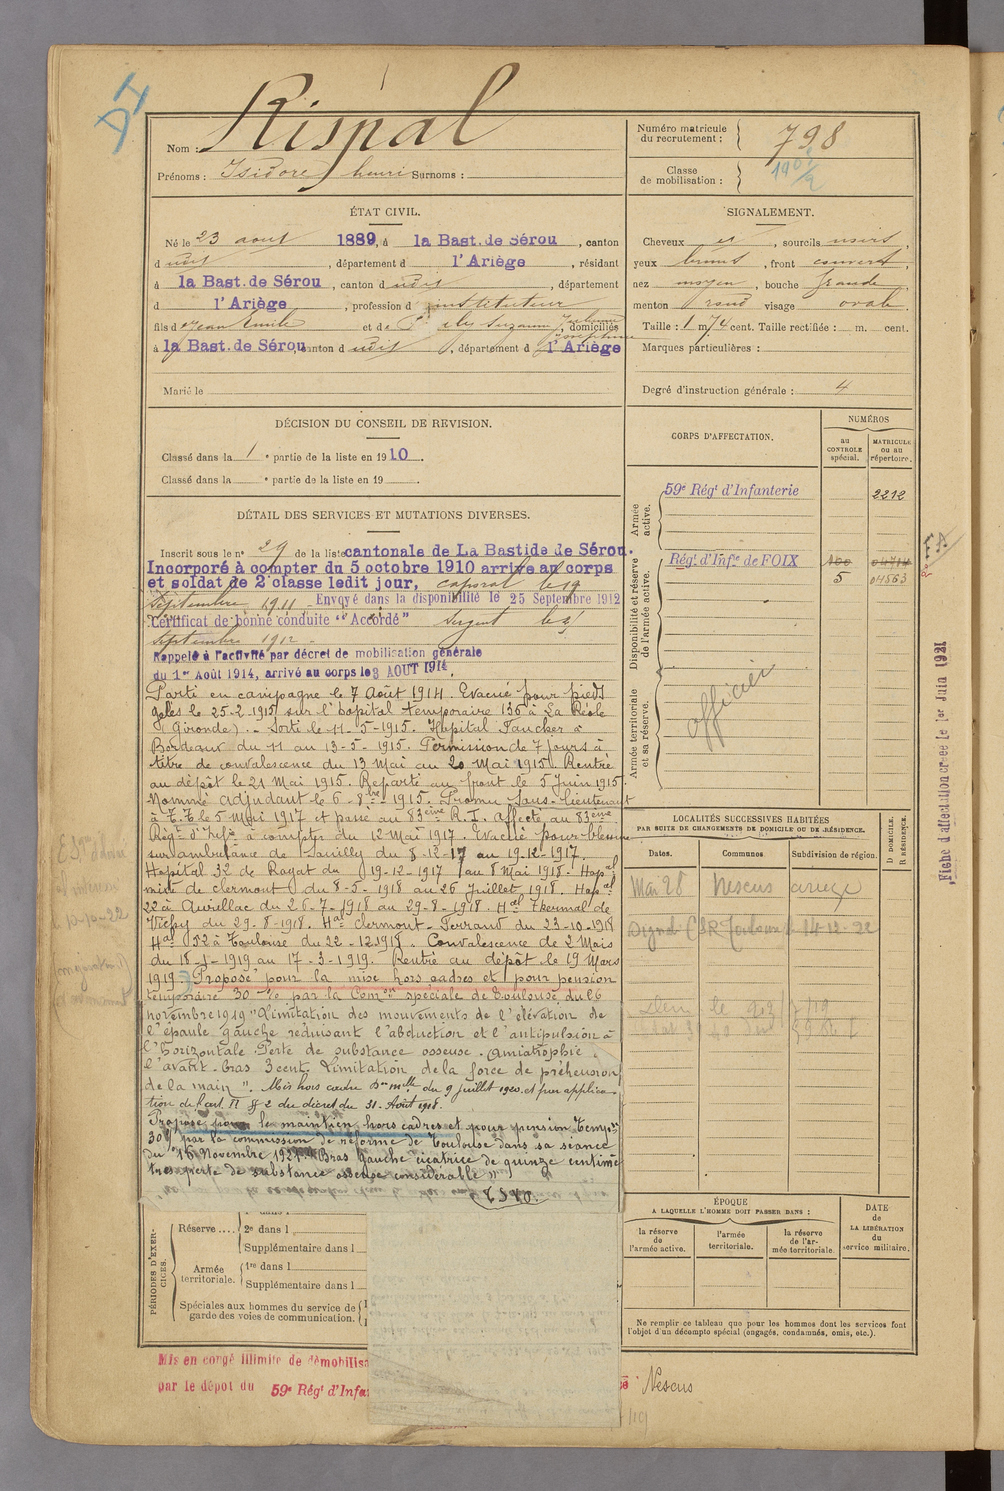 DI
Rispal
Nom :
Prénoms : Isidore henri Surnoms :
Numéro matricule du recrutement : 798
Classe de mobilisation :
ÉTAT CIVIL.
Né le 23 aout 1889, à la Bast. de Sérou, canton
d udit, département d l'Ariège, résidant
à la Bast. de Sérou, canton d udit, département
d l'Ariège, profession d instituteur
fils d Jean Emile et de Suzanne Josephine, domiciliés
à la Bast. de Sérou, canton d udit, département d l'Ariège
Marié le
SIGNALEMENT.
Cheveux et, sourcils noirs,
yeux bruns, front couvert,
nez moyen, bouche grande,
menton rond visage ovale.
Taille : 1 m 74 cent. Taille rectifiée : m. cent.
Marques particulières :
Degré d'instruction générale : 4
DÉCISION DU CONSEIL DE REVISION.
Classé dans la 1e partie de la liste en 1910.
Classé dans la e partie de la liste en 19
CORPS D'AFFECTATION.
NUMÉROS
au CONTROLE spécial.
MATRICULE ou au répertoire.
Armée active.
59e Régt d'Infanterie 2212
Disponibilité et réserve de l'armée active.
Régt d'Infie de FOIX 100 04714
5 04563
Armée territoriale et sa réserve.
officier
FA
Fiche d'affectation créée le 1er Juin 1921
DÉTAIL DES SERVICES ET MUTATIONS DIVERSES.
Inscrit sous le n° 29 de la liste cantonale de La Bastide de Sérou.
Incorporé à compter du 5 octobre 1910 arrivé au corps
et soldat de 2e classe ledit jour, caporal le 19
septembre 1911 Envoyé dans la disponibilité le 25 Septembre 1912
Certificat de bonne conduite "Accordé" Sergent le
septembre 1912
Rappelé à l'activité par décret de mobilisation générale
du 1er Août 1914, arrivé au corps le 3 AOUT 1914.
Parti en campagne le 7 Août 1914. Evacué pour pieds
gelés le 25-2-1915 sur l'hôpital temporaire 136 à La Réole
(Gironde). - Sorti le 11-5-1915. Hôpital Faucher à
Bordeaux du 11 au 13-5-1915. Permission de 7 jours à
titre de convalescence du 13 Mai au 20 Mai 1915. Rentré
au dépôt le 21 Mai 1915. Reparti au front le 5 Juin 1915.
Nommé adjudant le 6-8bre-1915. Promu Sous-lieutenant
à T.T. le 5 Mai 1917 et passé au 83ème R.I. Affecté au 83ème
Régt d'Infie à compter du 12 Mai 1917. Evacué pour blessure
sur ambulance de Souilly du 8-12-17 au 19-12-1917.
Hôpital 32 de Royat du 19-12-1917 au 8 Mai 1918. Hopal
mixte de clermont du 8-5-1918 au 26 Juillet 1918. Hopal
22 à Aurillac du 26-7-1918 au 29-8-1918. Hal Thermal de
Vichy du 29-8-1918. Hal clermont-Ferrand du 23-10-1918
Hal 52 à Toulouse du 22-12-1918. Convalescence de 2 Mois
du 18-1-1919 au 17-3-1919. Rentré au dépôt le 19 Mars
1919. Proposé pour la mise hors cadres et pour pension
temporaire 30 % par la Comon spéciale de Toulouse du 26
novembre 1919 "Limitation des mouvements de l'élévation de
l'épaule gauche réduisant l'abduction et l'antipulsion à
l'horizontale. Perte de substance osseuse. Amiatrophie
l'avant-bras 3 cent. Limitation de la force de préhension
de la main". Mis hors cadre Don mlle du 9 juillet 1920 et par applica-
tion de l'art II § 2 du décret du 31-Août 1918.
Proposé pour le maintien hors cadres et pour pension tempre
30 % par la commission de réforme de Toulouse dans sa séance
du 16 Novembre 1921 "Bras gauche cicatrice de quinze centimè
tres perte de substance osseuse considérable"
LOCALITÉS SUCCESSIVES HABITÉES
PAR SUITE DE CHANGEMENTS DE DOMICILE OU DE RÉSIDENCE.
Dates. Communes. Subdivision de région. D DOMICILE. R RÉSIDENCE.
Mai 28 Nescus ariege
Signal CSR Toulouse 14-12-22
ÉPOQUE
A LAQUELLE L'HOMME DOIT PASSER DANS :
la réserve de l'armée active.
l'armée territoriale.
la réserve de l'armée territoriale
DATE de LA LIBÉRATION du service militaire.
Ne remplir ce tableau que pour les hommes dont les services font
l'objet d'un décompte spécial (engagés, condamnés, omis, etc.).
PÉRIODES D'EXERCICES.
Réserve .... 2e dans l
Supplémentaire dans l
Armée territoriale. 1re dans l
Supplémentaire dans l
Spéciales aux hommes du service de
garde des voies de communication.
Mis en congé illimité de démobilisa
par le dépôt du 59e Régt d'Infa
Nescus